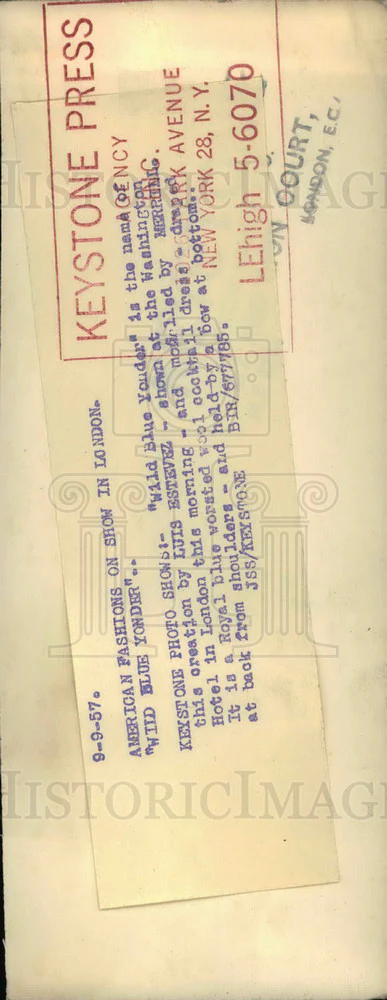 9-9-57.
AMERICAN FASHIONS ON SHOW IN LONDON.
"WIID BLUE YONDER"..
KEYSTONE PHOTO SHOWS:- "Wild Blue Yonder" is the name of
this creation by LUIS ESTEVEZ - shown at the Washington
Hotel in London this morning - and modelled by
It is a Royal blue worsted wool cocktail dress - draped
at back from shoulders - and held by a bow at bottom..
JSS/KEYSTONE BIR/677785.
KEYSTONE PRESS
AGENCY
INC.
PARK AVENUE
NEW YORK 28, N. Y.
LEhigh 5-6070
COURT,
LONDON, E.C.
HISTORICIMAGES
HISTORICIMAGES